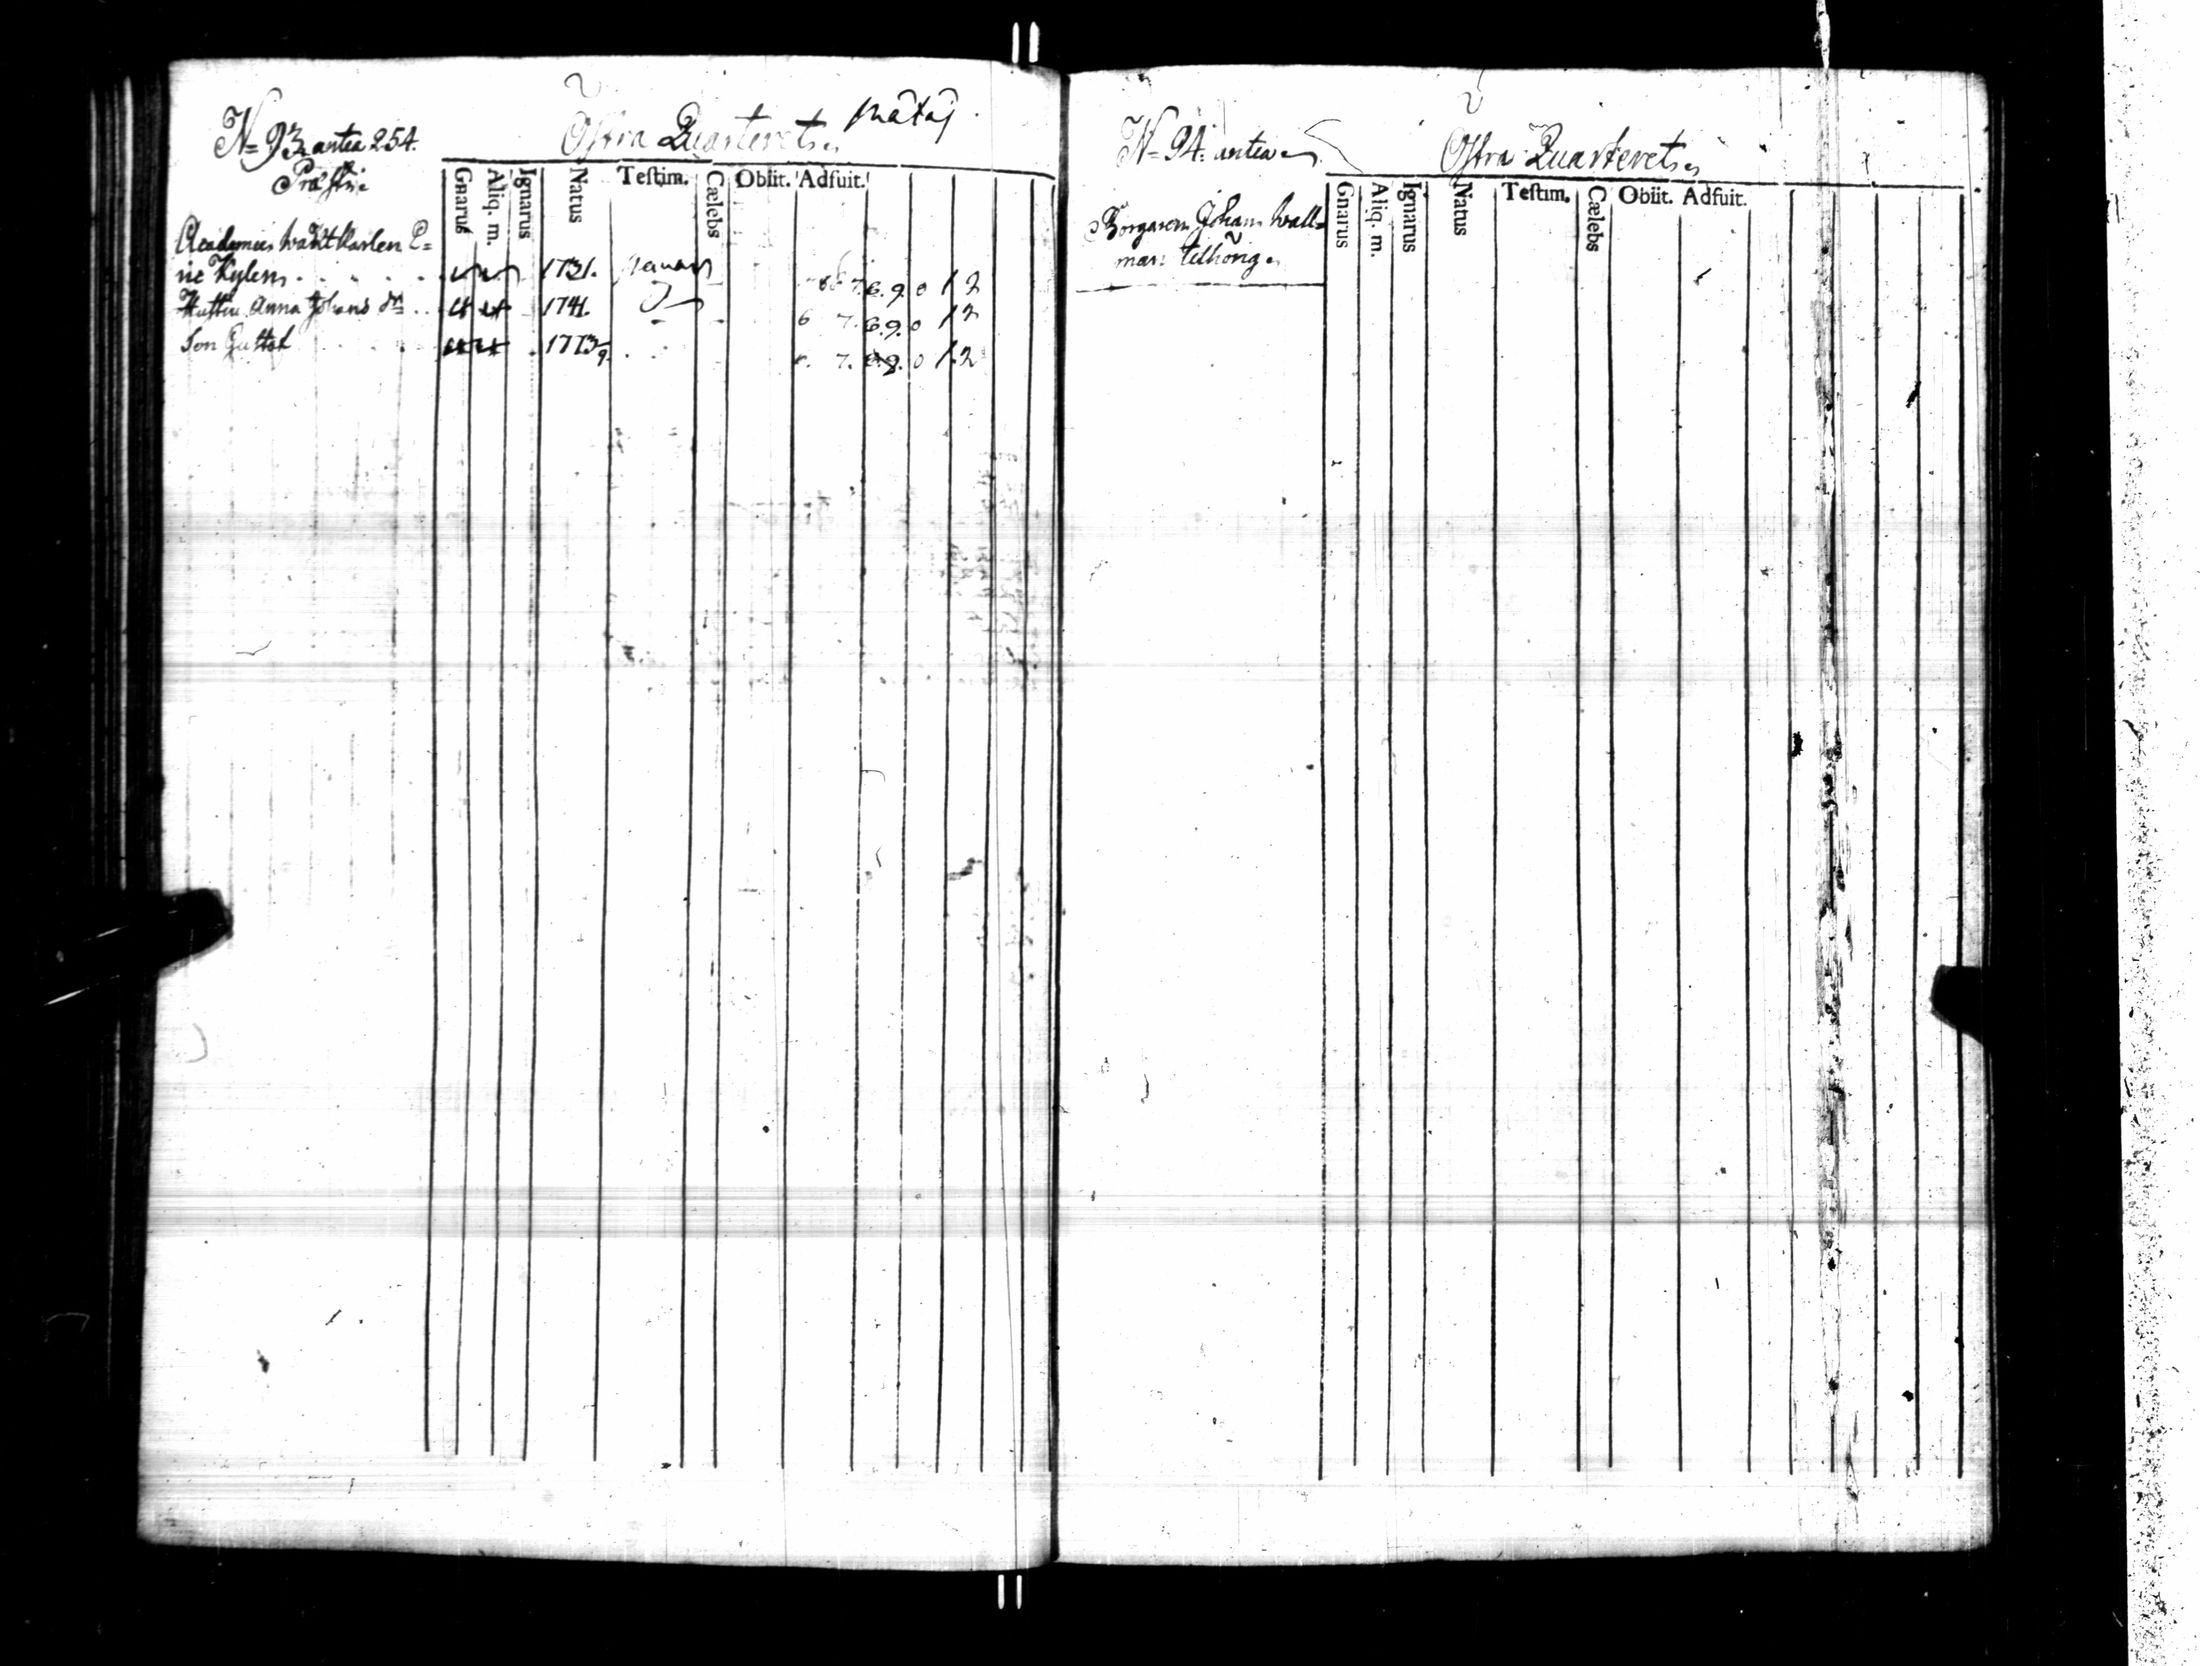 N= 93 antea 254.
Östra Quarteret.
Gnarus Aliq. m. Ignarus Natus Testim. Cælebs Obiit. Adfuit.
Academiæ wacktkarlen E=
ric Kylen
1731.
7. 8. 9. 0 1 2
Hustru Anna Johans dr
1741.
6 7. 8. 9. 0 1 2
Son Gustaf
1773/9.
7. 8. 9. 0 1. 2
N= 94. antea
Östra Quarteret.
Gnarus Aliq. m. Ignarus Natus Testim. Cælebs Obiit. Adfuit.
Borgaren Johan Wall=
man tilhörig.